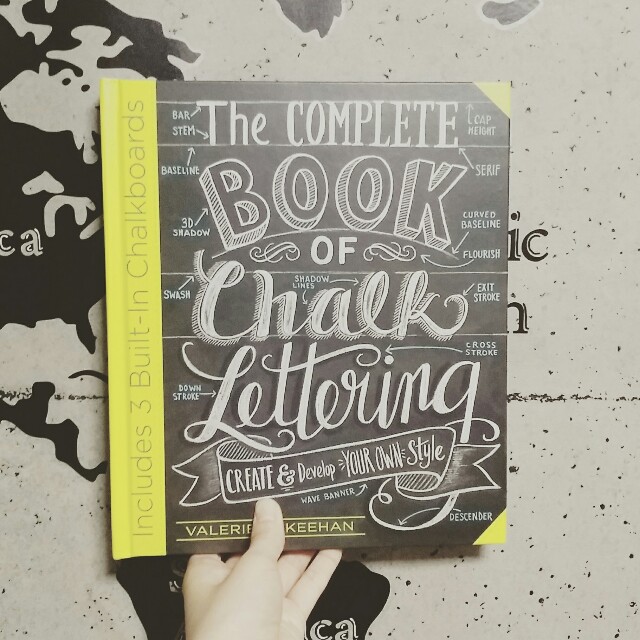 Includes 3 Built-In Chalkboards
BAR
STEM
The COMPLETE
CAP
HEIGHT
BASELINE
BOOK
SERIF
3D
SHADOW
CURVED
BASELINE
OF
FLOURISH
SWASH
SHADOW
LINES
Chalk
EXIT
STROKE
CROSS
STROKE
DOWN
STROKE
Lettering
CREATE & Develop YOUR OWN Style
WAVE BANNER
DESCENDER
VALERIE KEEHAN
ca
ic
n
ca